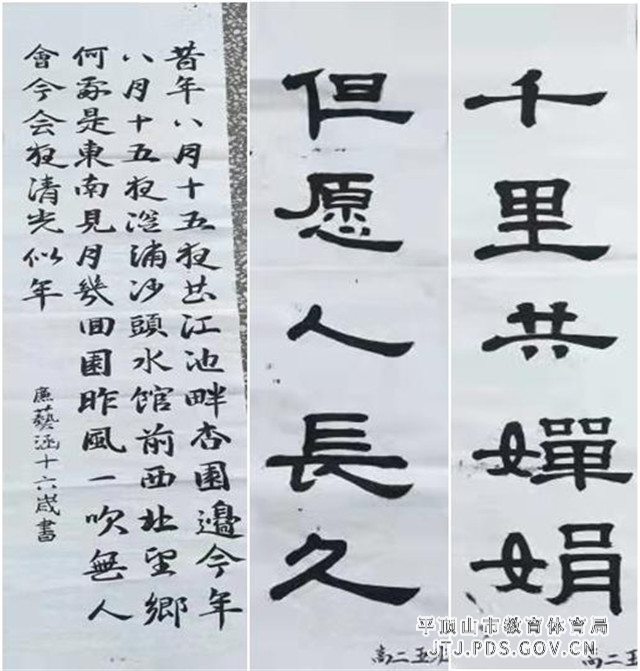 昔年八月十五夜曲江池畔杏園邊今年
八月十五夜湓浦沙頭水館前西北望鄉
何處是東南見月幾回園昨風一吹無人
會今会夜清光似年
廉藝涵十六歲書
但愿人長久
高二五
千里共嬋娟
高二五
平顶山市教育体育局
JTJ.PDS.GOV.CN